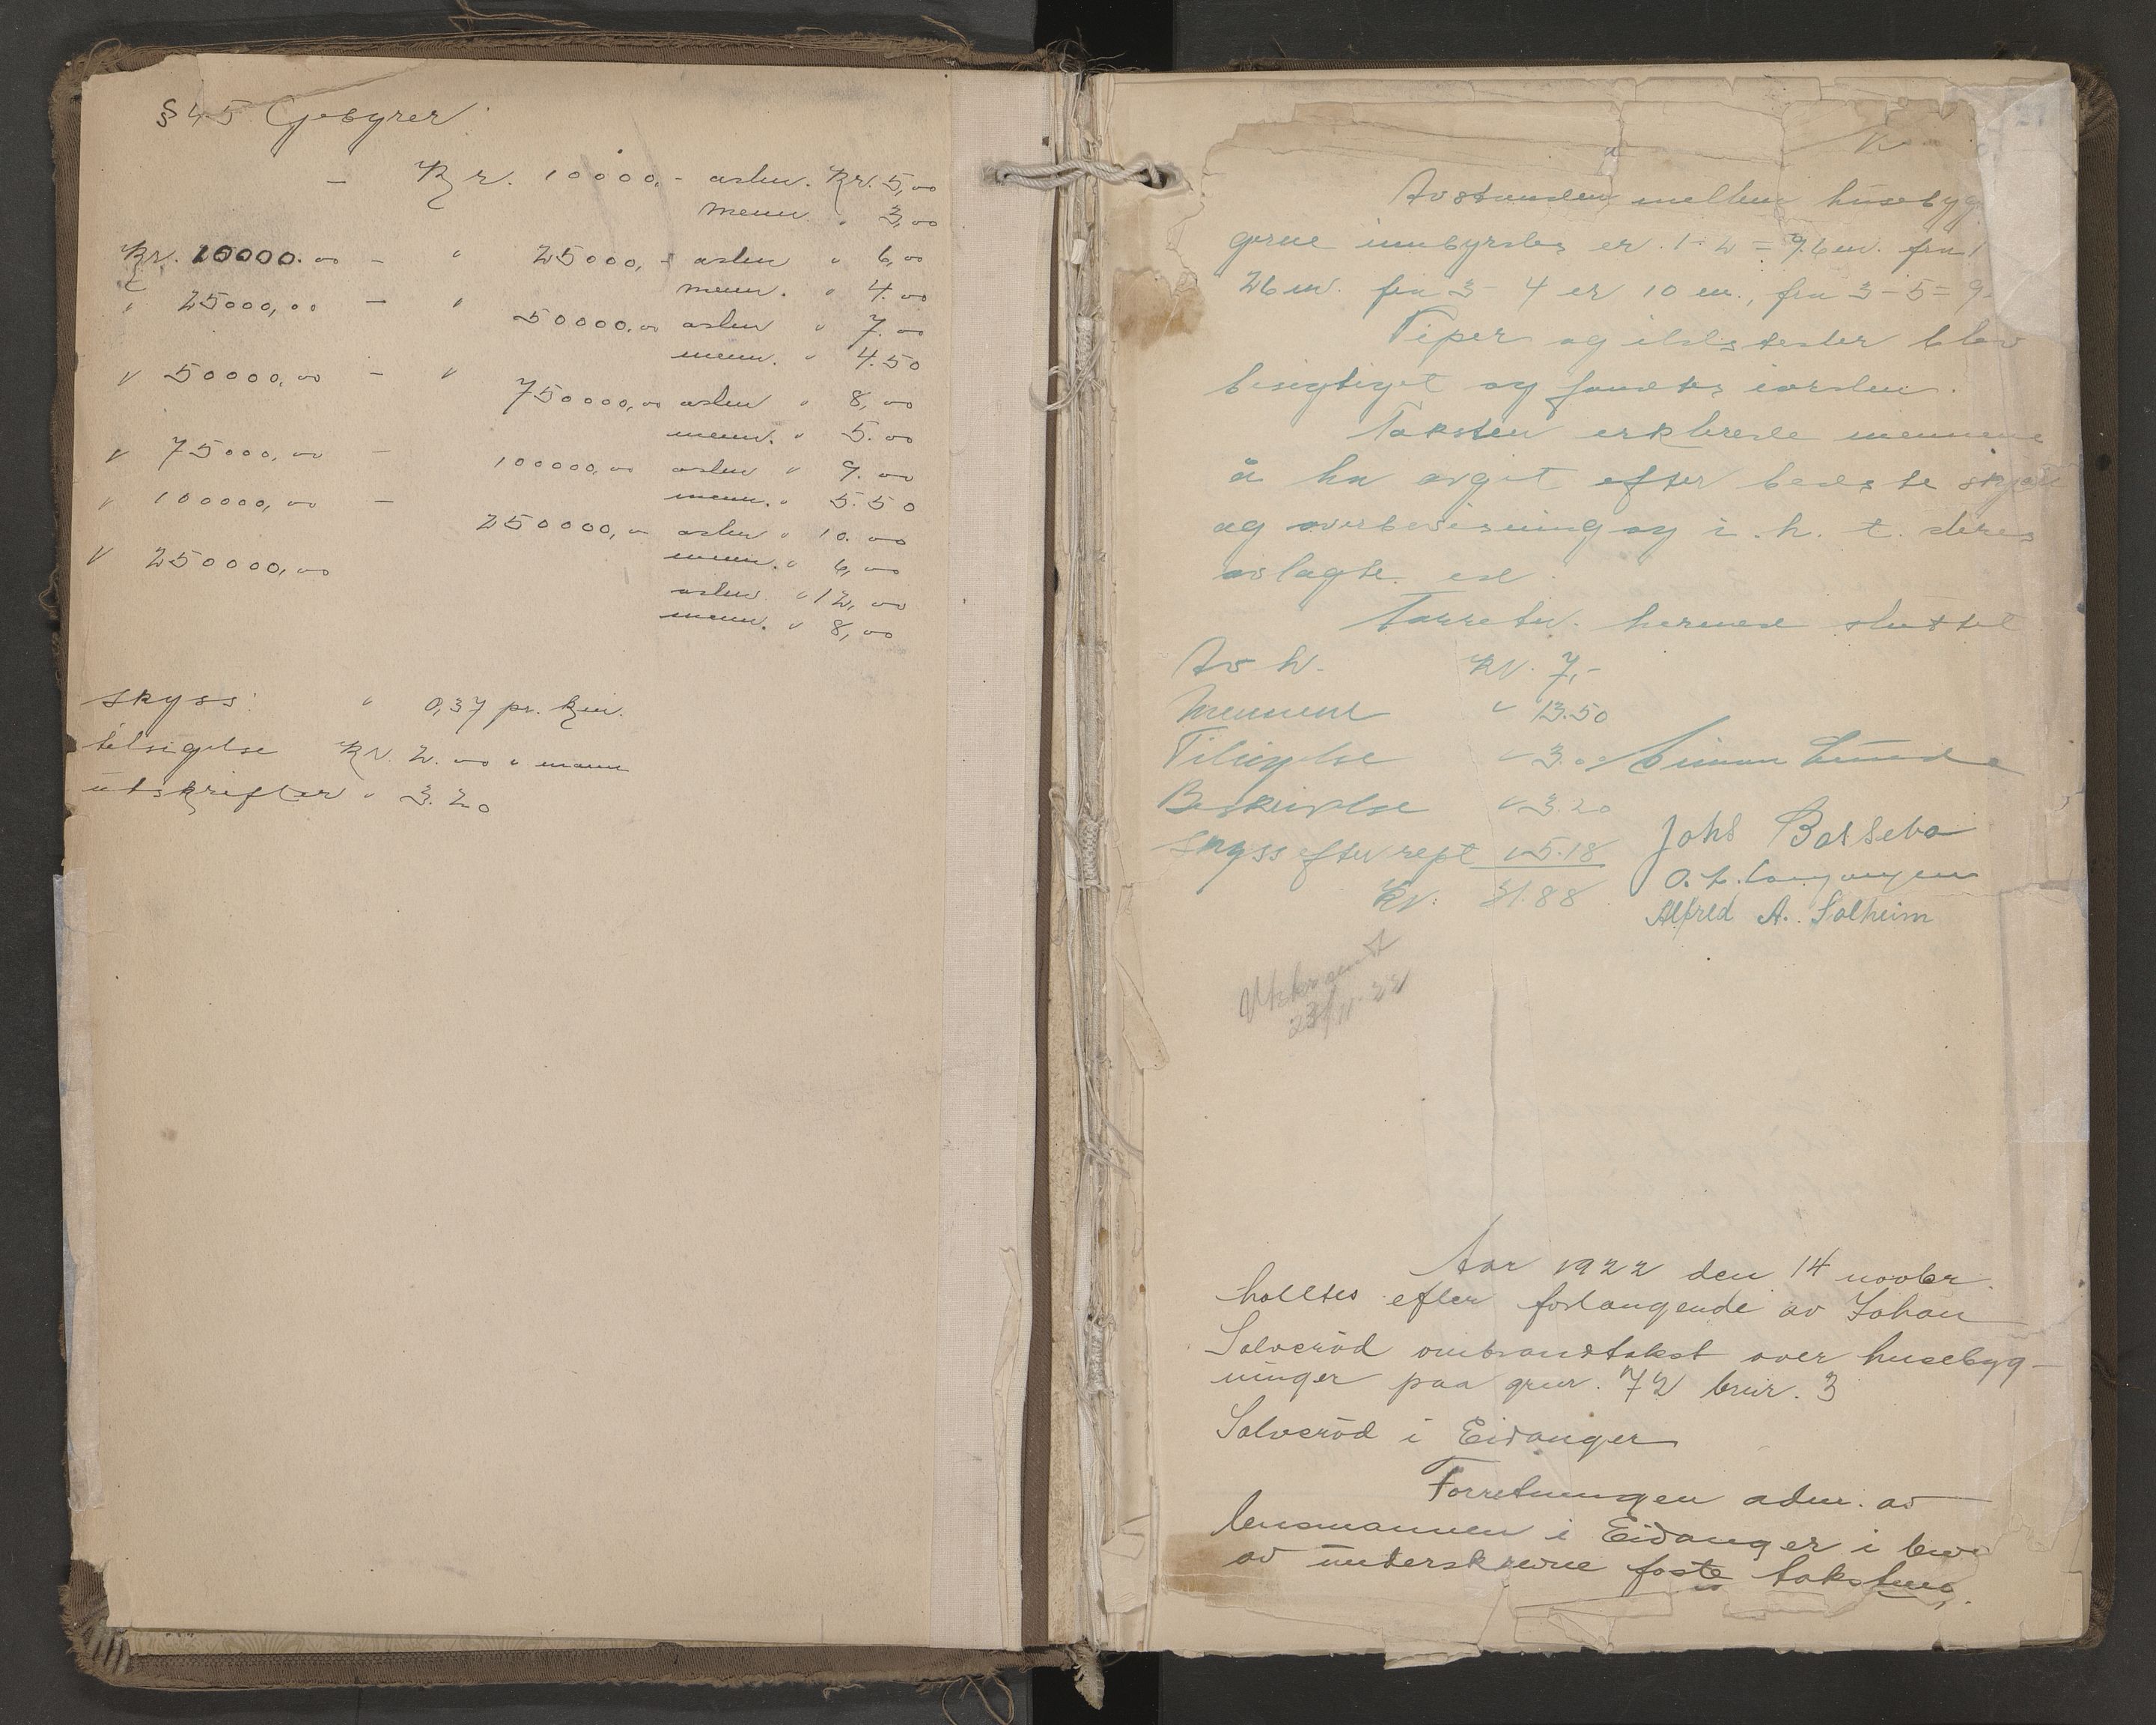 §45 Gebyrer
- Kr. 10000,- asln. Kr. 5,00
menn. " 3,00
Kr. 10000.00 - " 25000,- asln " 6,00
menn. " 4.00
" 25000,00 - " 50000.00 asln " 7.00
menn. " 4.50
" 50000,00 - " 750000,00 asln " 8,00
menn. " 5.00
" 75000,00 - 100000,00 asln " 9.00
menn. " 5.50
" 100000,00 - 250000,00 asln " 10.00
menn. " 6,00
" 250000,00 asln " 12,00
menn. " 8,00
skyss: " 0,37 pr. km.
tilsigelse Kr. 2.00 " mann
utskrifter " 3.20
Avstanden mellem husebyg
gerne innbyrdes er 1-2 = 9.6m. fra 1
26 m. fra 3- 4 er 10 m., fra 3-5= 9
Piper og ildsteder blev
besigtiget og fandtes iorden.
Taksten erklærede mennene
å ha avgit efter bedste skjøn
og overbevisning og i.h.t. deres
avlagte ed.
Forretn. hermed sluttet
Av h. Kr. 7,-
Mennene " 13.50
Tilsigelse " 3.00 Simon Lunde
Beskrivelse " 3.20
Johs Bassebo
Skyss efter rept " 5.18
O. L. Langangen
Kr. 31.88
Alfred A. Solheim
Utskrevet
23/11-22
Aar 1922 den 14 novbr.
holdtes efter forlangende av Johan
Salveröd ombrandtakst over husebyg-
ninger paa grnr. 72 brnr. 3
Salveröd i Eidanger
Forretningen adm. av
lensmannen i Eidanger i
av underskrevne faste